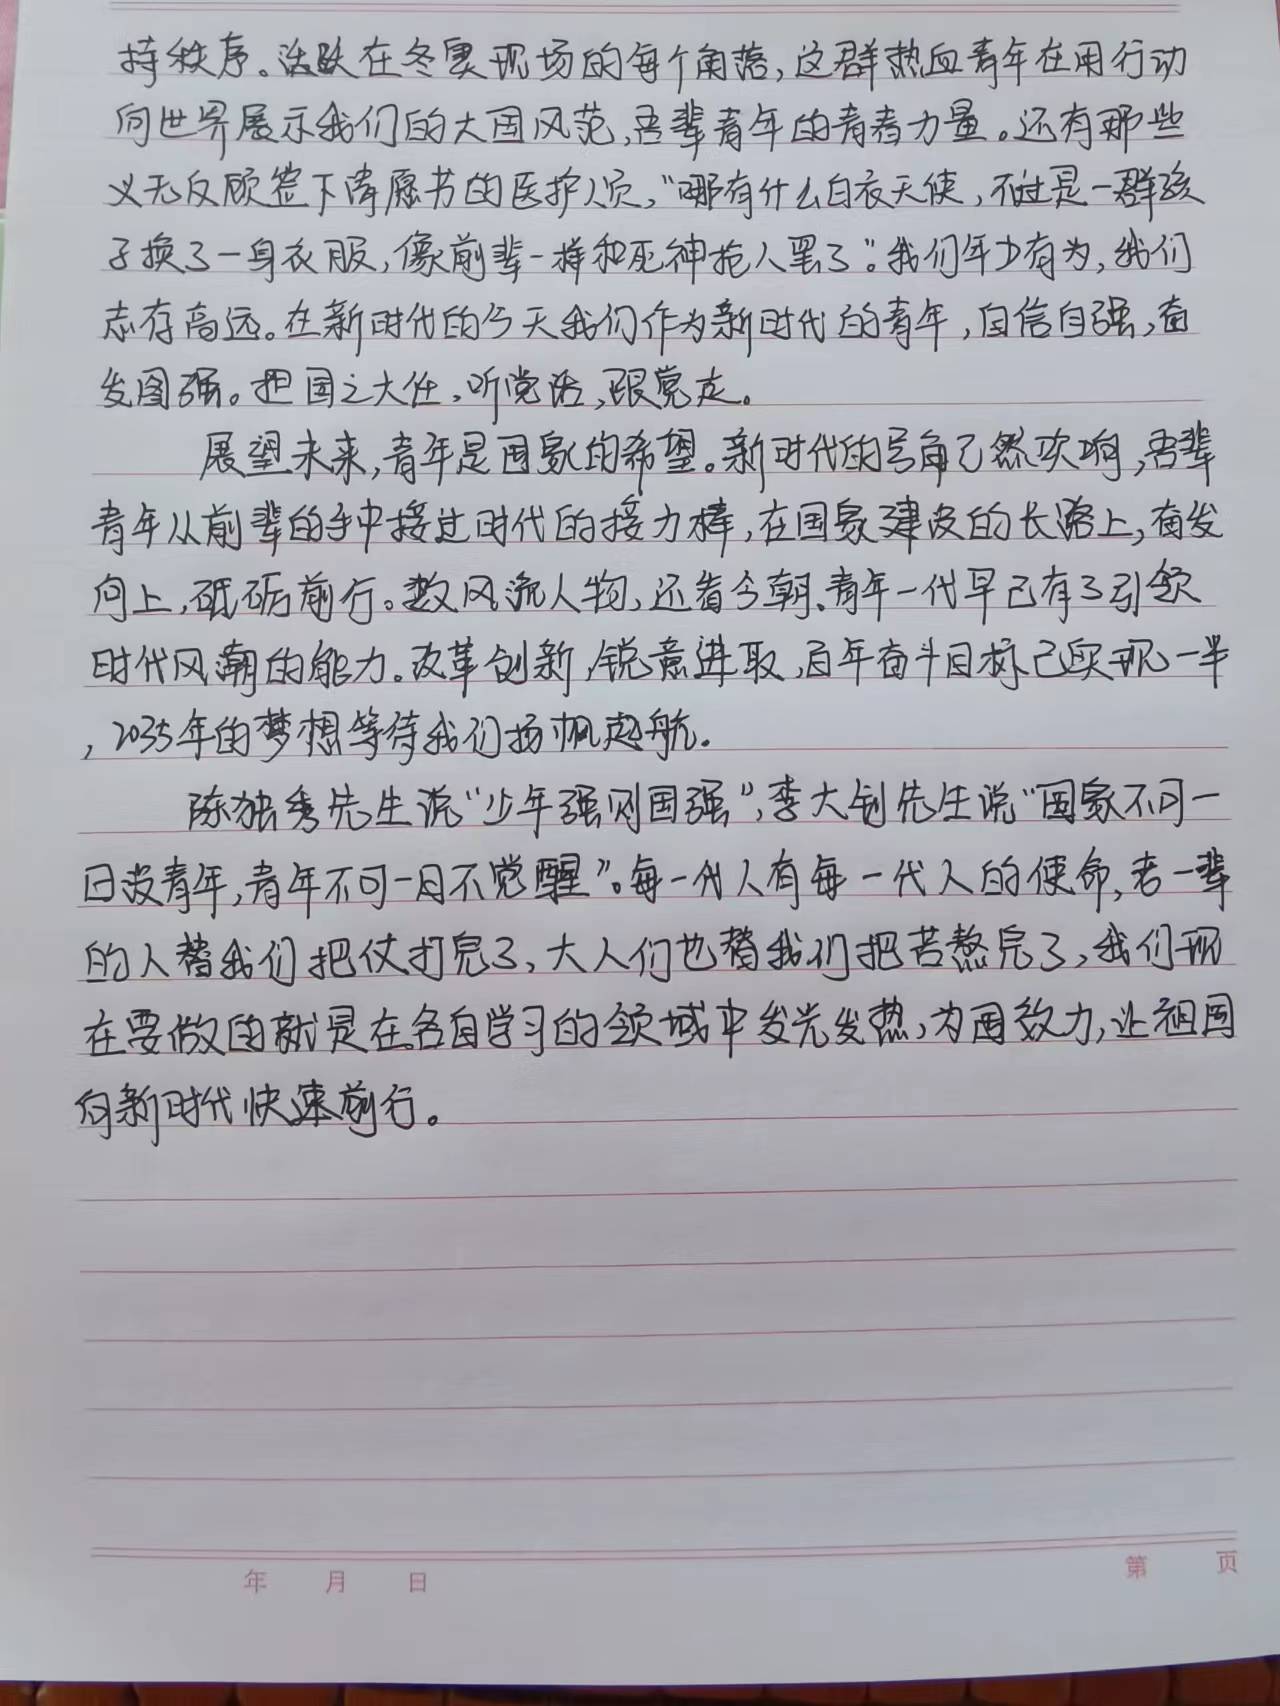 持秩序。活跃在冬奥现场的每个角落,这群热血青年在用行动
向世界展示我们的大国风范,吾辈青年的青春力量。还有那些
义无反顾签下请愿书的医护人员,“哪有什么白衣天使,不过是一群孩
子换了一身衣服,像前辈一样和死神抢人罢了”。我们年少有为,我们
志存高远。在新时代的今天我们作为新时代的青年,自信自强,奋
发图强。担国之大任,听党话,跟党走。
展望未来,青年是国家的希望。新时代的号角已然吹响,吾辈
青年从前辈的手中接过时代的接力棒,在国家建设的长路上,奋发
向上,砥砺前行。数风流人物,还看今朝、青年一代早已有了引领
时代风潮的能力。改革创新,锐意进取,百年奋斗目标已实现一半
,2035年的梦想等待我们扬帆起航.
陈独秀先生说“少年强则国强”,李大钊先生说“国家不可一
日没青年,青年不可一日不觉醒”。每一代人有每一代人的使命,老一辈
的人替我们把仗打完了,大人们也替我们把苦熬完了,我们现
在要做的就是在各自学习的领域中发光发热,为国效力,让祖国
向新时代快速前行。
年 月 日
第 页